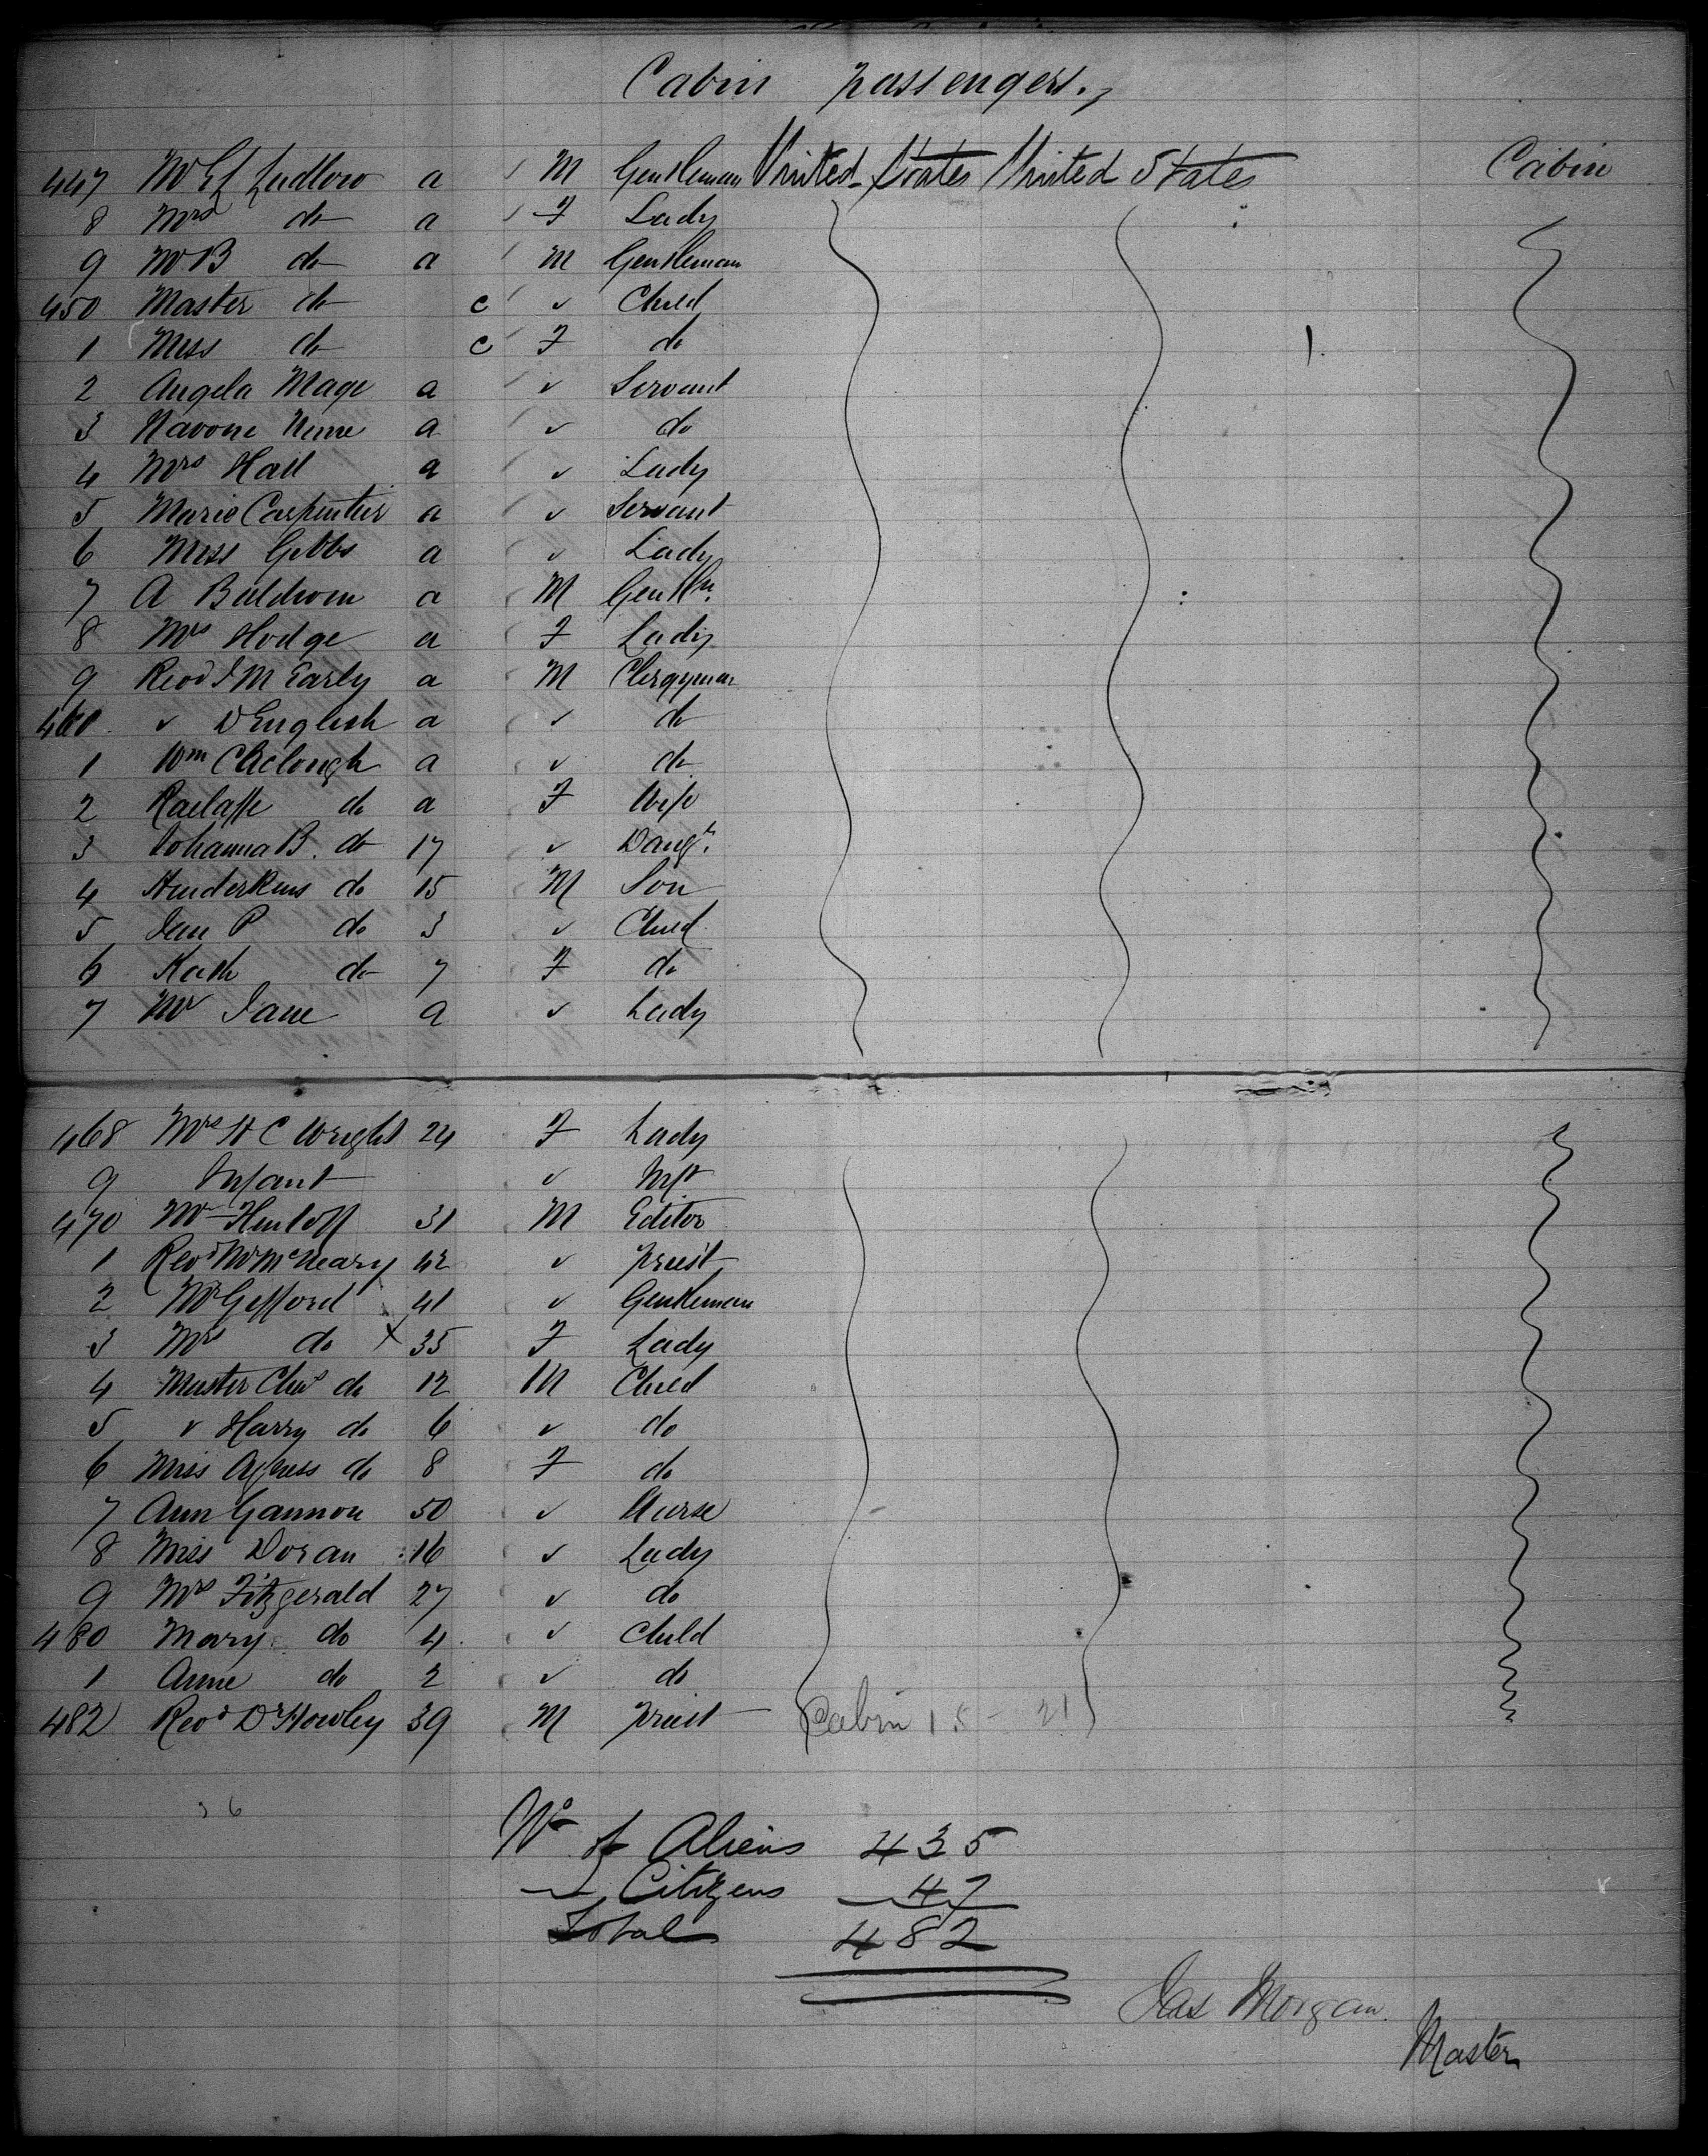 Cabin passengers.,
447 Mr E L Ludlow a M Gentleman United States United States Cabin
8 Mrs do a F Lady
9 Mr B do a M Gentleman
450 Master do c ✓ Child
1 Miss do c F do
2 Angela Mage a ✓ Servant
3 Navone a ✓ do
4 Mrs Hall a ✓ Lady
5 Marie Carpentier a ✓ Servant
6 Miss Gibbs a ✓ Lady
7 A Baldwin a M Gentln.
8 Mrs Hodge a F Lady
9 Revd J M Early a M Clergyman
460 ✓ D English a ✓ do
1 Wm a ✓ do
2 do a F Wife
3 Johanna B. do 17 ✓ Daugr.
4 do 15 M Son
5 Jan P do 3 ✓ Child
6 Kath do 7 F do
7 Mr Jane a ✓ Lady
468 Mrs H C Wright 24 F Lady
9 Infant ✓ Inft
470 Mr 31 M Editor
1 Revd Mr McNeary 42 ✓ priest
2 Mr Gifford 41 ✓ Gentleman
3 Mrs do X 35 F Lady
4 Master Chas do 12 M Child
5 ✓ Harry do 6 ✓ do
6 Miss Agness do 8 F do
7 Ann Gannon 50 ✓ Nurse
8 Miss Doran 16 ✓ Lady
9 Mrs Fitzgerald 27 ✓ do
480 Mary do 4 ✓ Child
1 Anne do 2 ✓ do
482 Revd Dr Howley 39 M priest Cabin 15 - 21
36
No of Aliens 435
" Citizens 47
Total 482
Jas Morgan
Master